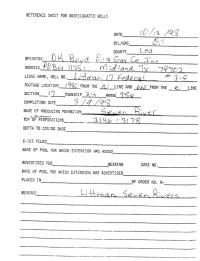 REFERENCE SHEET FOR UNDESIGNATED WELLS
DATE 10/13/98
OIL/GAS Oil
COUNTY Lea
OPERATOR DK Boyd Oil & Gas Co Inc
ADDRESS PO Box 11351 Midland Tx 79702
LEASE NAME, WELL NO. Littman 17 Federal
FOOTAGE LOCATION FROM THE LINE AND FROM THE LINE
SECTION 17 TOWNSHIP 21s RANGE 38e
COMPLETION DATE
NAME OF PRODUCING FORMATION Seven River
TOP OF PERFORATIONS 3146-3178
DEPTH TO CASING SHOE
C-123 FILED
NAME OF POOL FOR WHICH EXTENSION WAS ASKED
ADVERTISED FOR HEARING CASE NO.
NAME OF POOL FOR WHICH EXTENSION WAS ADVERTISED
PLACED IN BY ORDER NO. R-
REMARKS Littman Seven Rivers